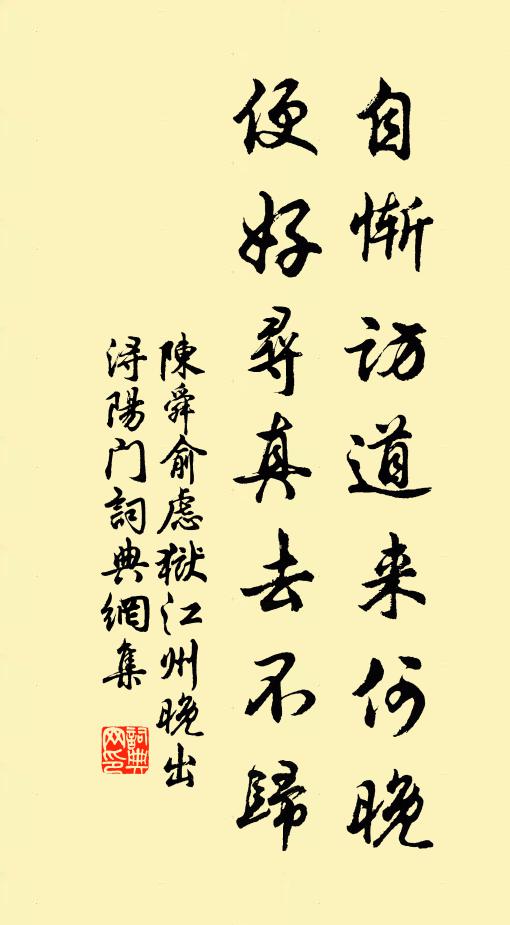 自慚访道来何晚
便好尋真去不歸
陳舜俞慮獄江州晚出
浔陽门詞典網集
詞典网印